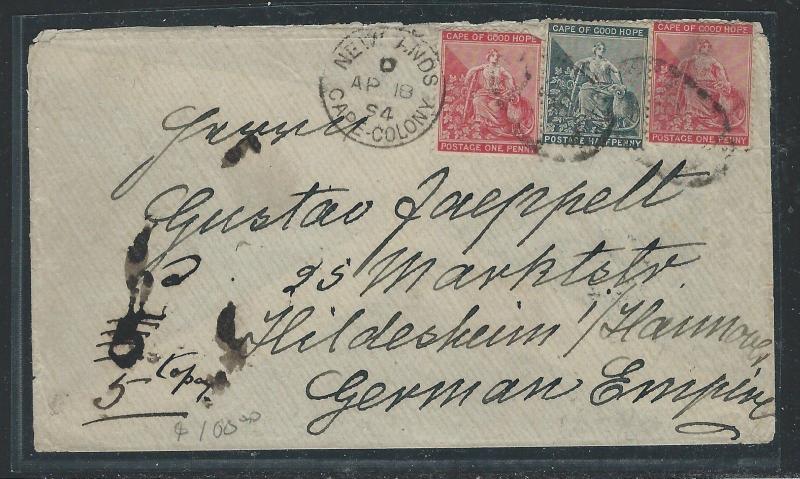 NEWLANDS
AP 18
94
CAPE-COLONY
CAPE OF GOOD HOPE
POSTAGE ONE PENNY
CAPE OF GOOD HOPE
POSTAGE HALFPENNY
CAPE OF GOOD HOPE
POSTAGE ONE PENNY
Herrn
Gustav Jaeppelt
25 Marktstr.
Hildesheim i/Hannover
German Empire
5
$100.00